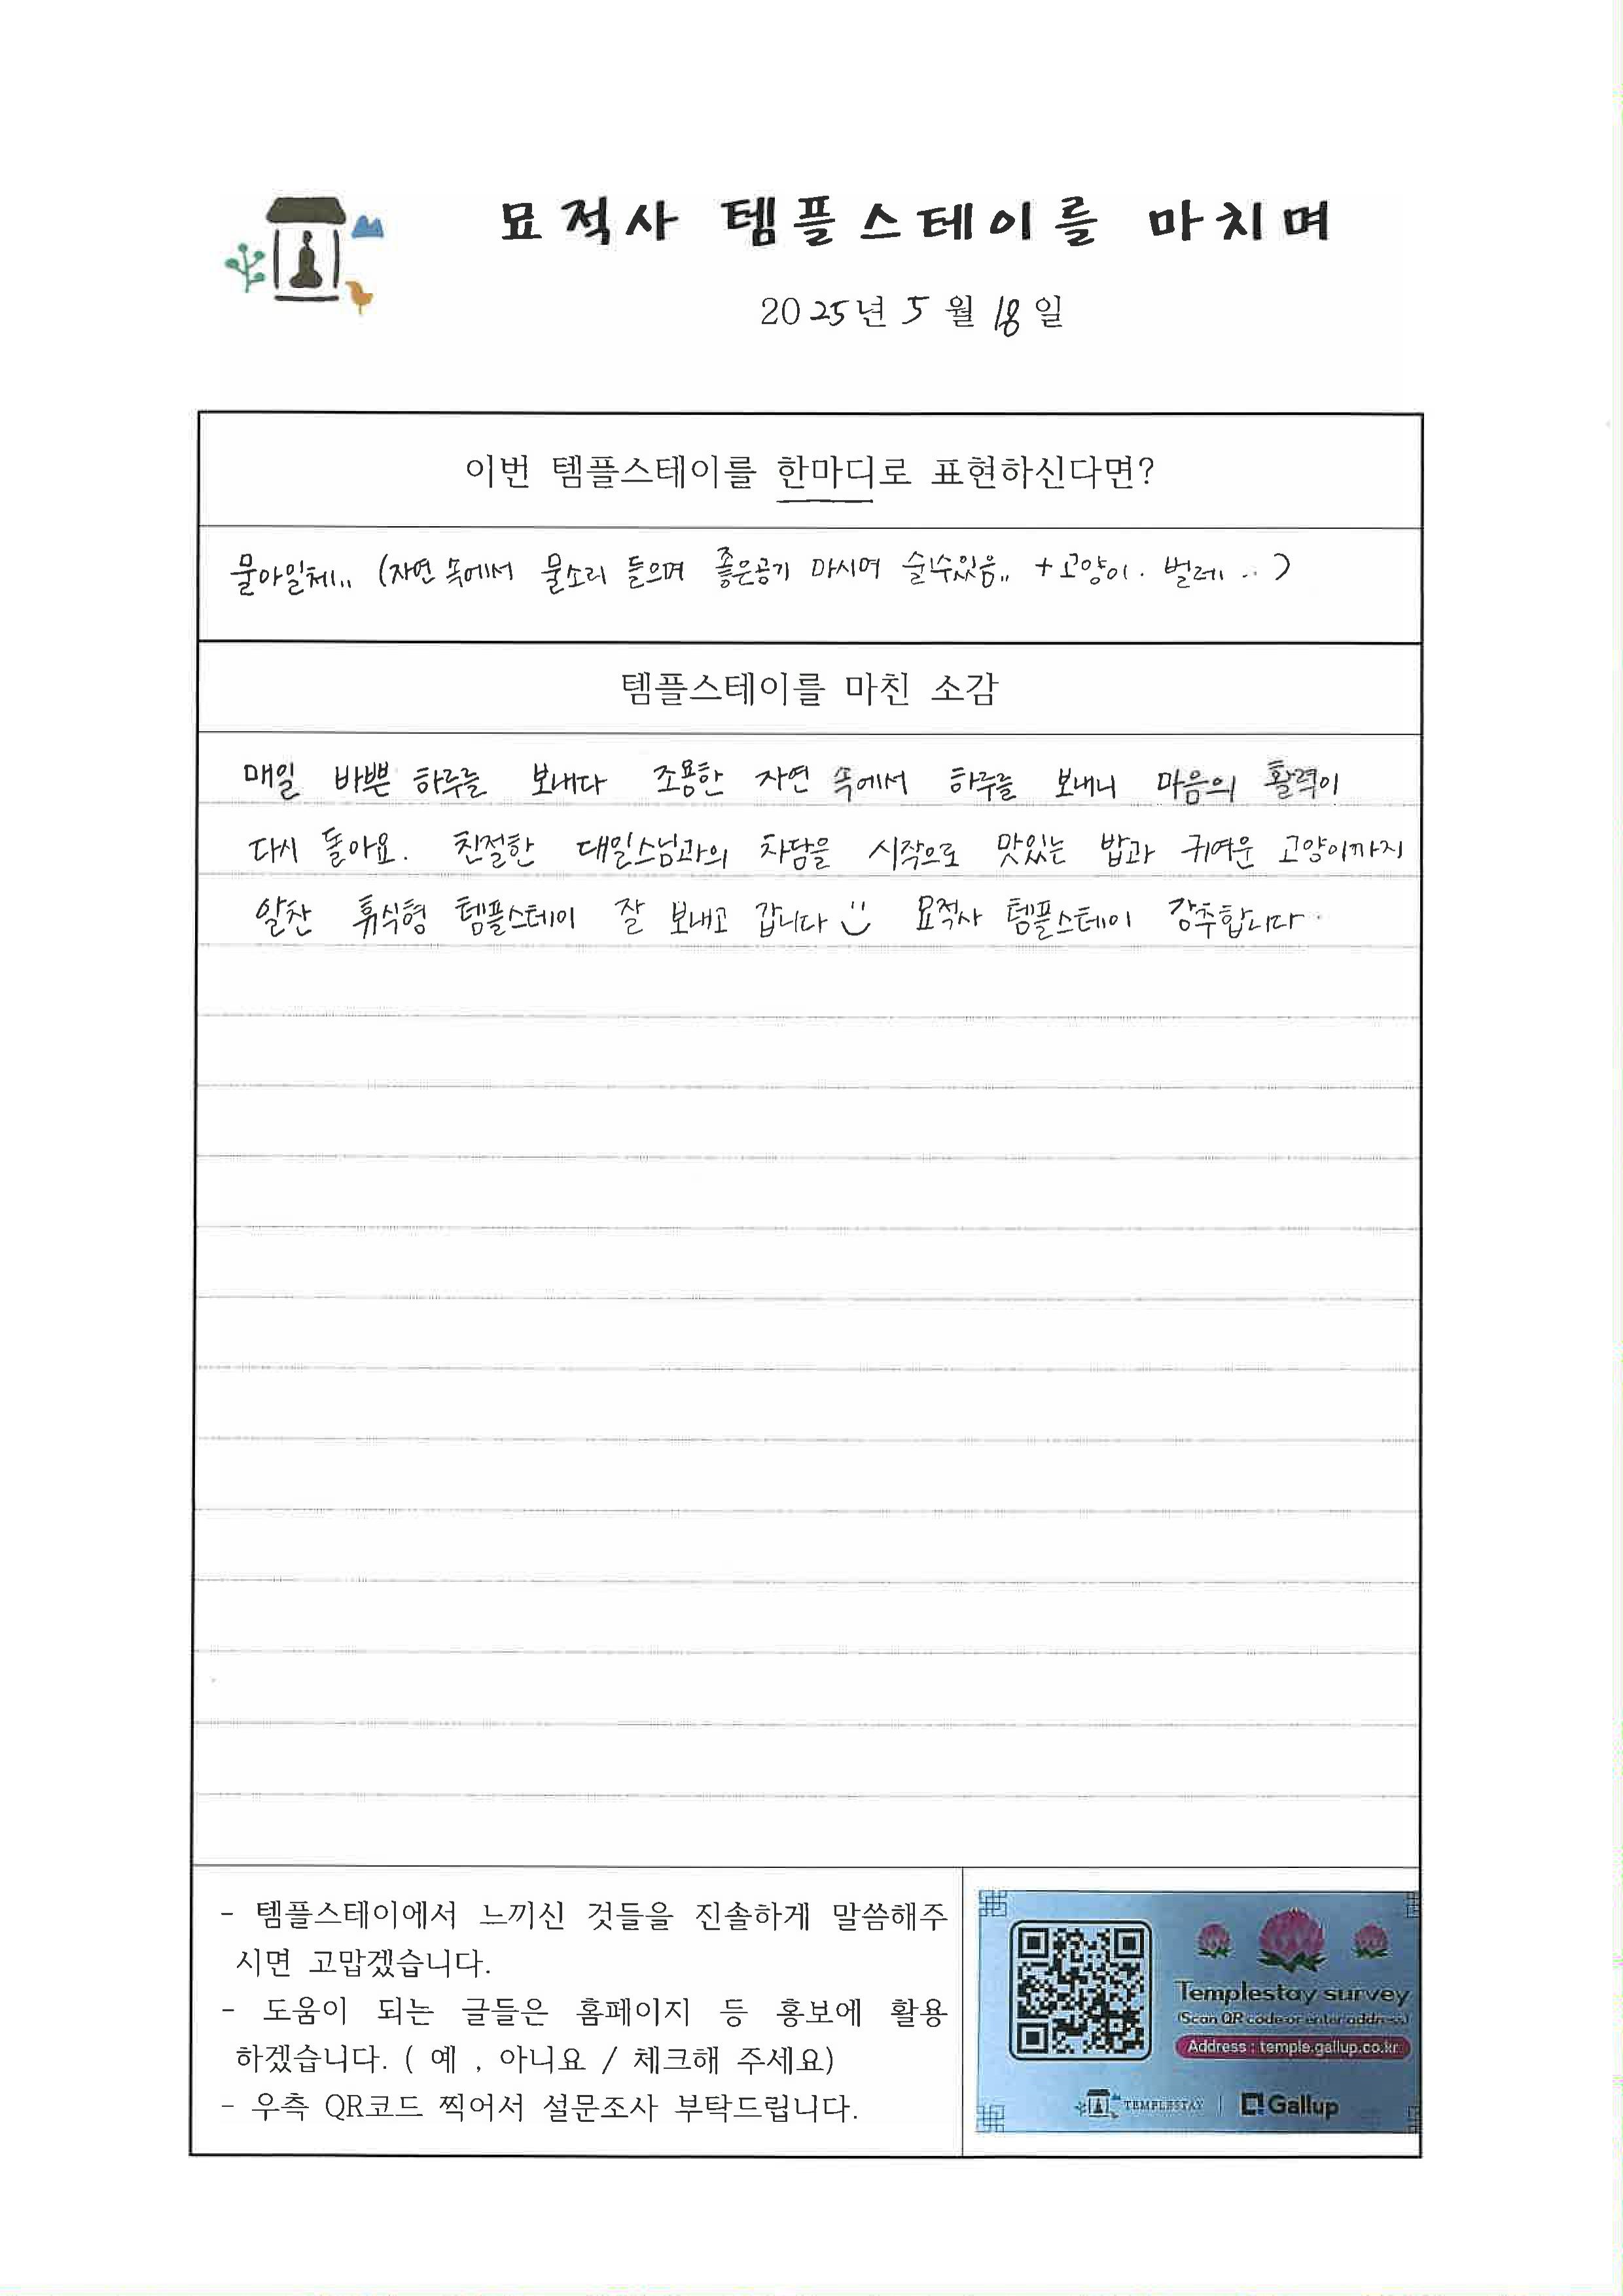 묘적사 템플스테이를 마치며
2025년 5월 18일
이번 템플스테이를 한마디로 표현하신다면?
물아일체.. (자연 속에서 물소리 들으며 좋은공기 마시며 쉴수있음.. + 고양이. 벌레 ..)
템플스테이를 마친 소감
매일 바쁜 하루를 보내다 조용한 자연 속에서 하루를 보내니 마음의 활력이
다시 돌아요. 친절한 대일스님과의 차담을 시작으로 맛있는 밥과 귀여운 고양이까지
알찬 휴식형 템플스테이 잘 보내고 갑니다 묘적사 템플스테이 강추합니다.
- 템플스테이에서 느끼신 것들을 진솔하게 말씀해주
시면 고맙겠습니다.
- 도움이 되는 글들은 홈페이지 등 홍보에 활용
하겠습니다. ( 예 , 아니요 / 체크해 주세요)
- 우측 QR코드 찍어서 설문조사 부탁드립니다.
Templestay survey
(Scan QR code or enter address)
Address : temple.gallup.co.kr
TEMPLESTAY | Gallup